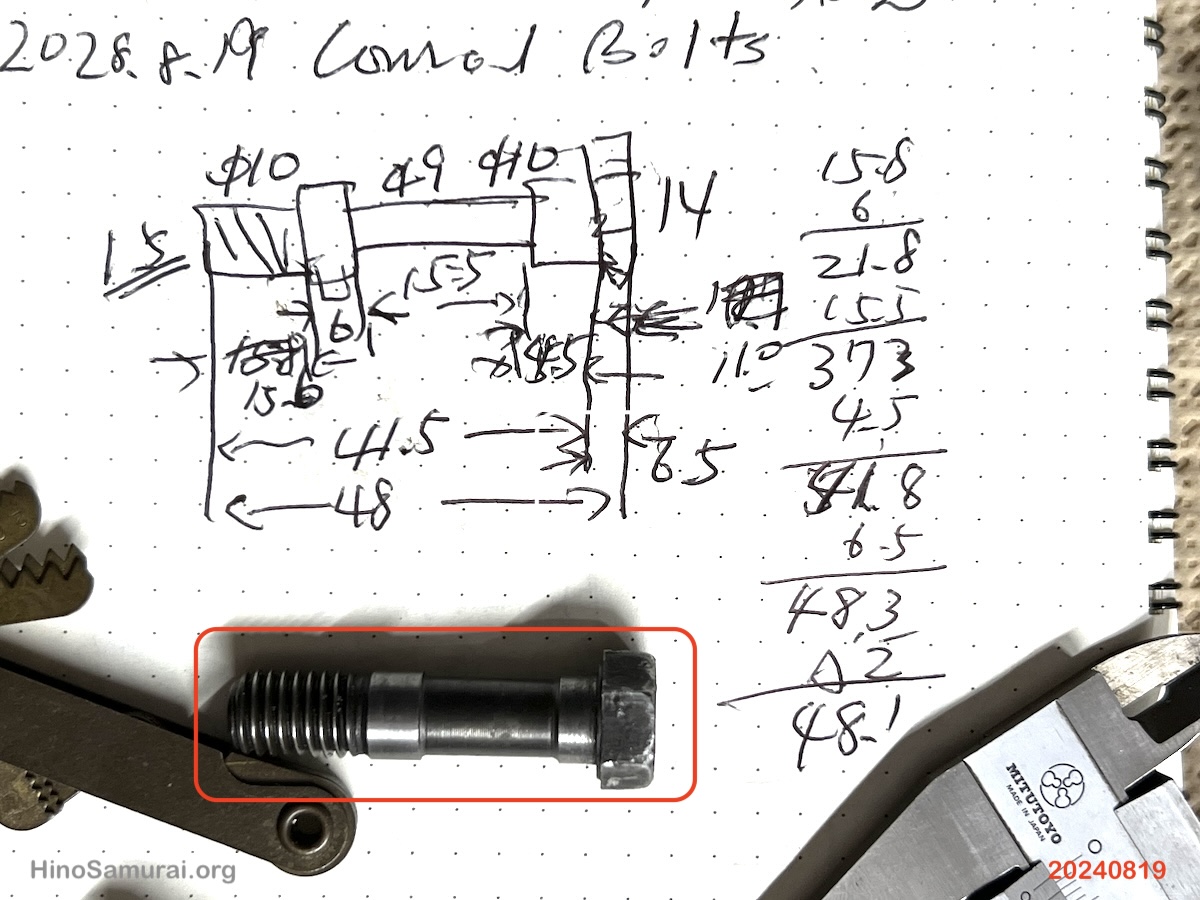 2028.8.19 Conrod Bolts
φ10
φ9
φ10
14
1.5
15.5
6
15.0
4.5
11.0
41.5
6.5
48
15.8
6
21.8
15.5
37.3
4.5
41.8
6.5
48.3
Δ.2
48.1
MITUTOYO
MADE IN JAPAN
HinoSamurai.org
20240819